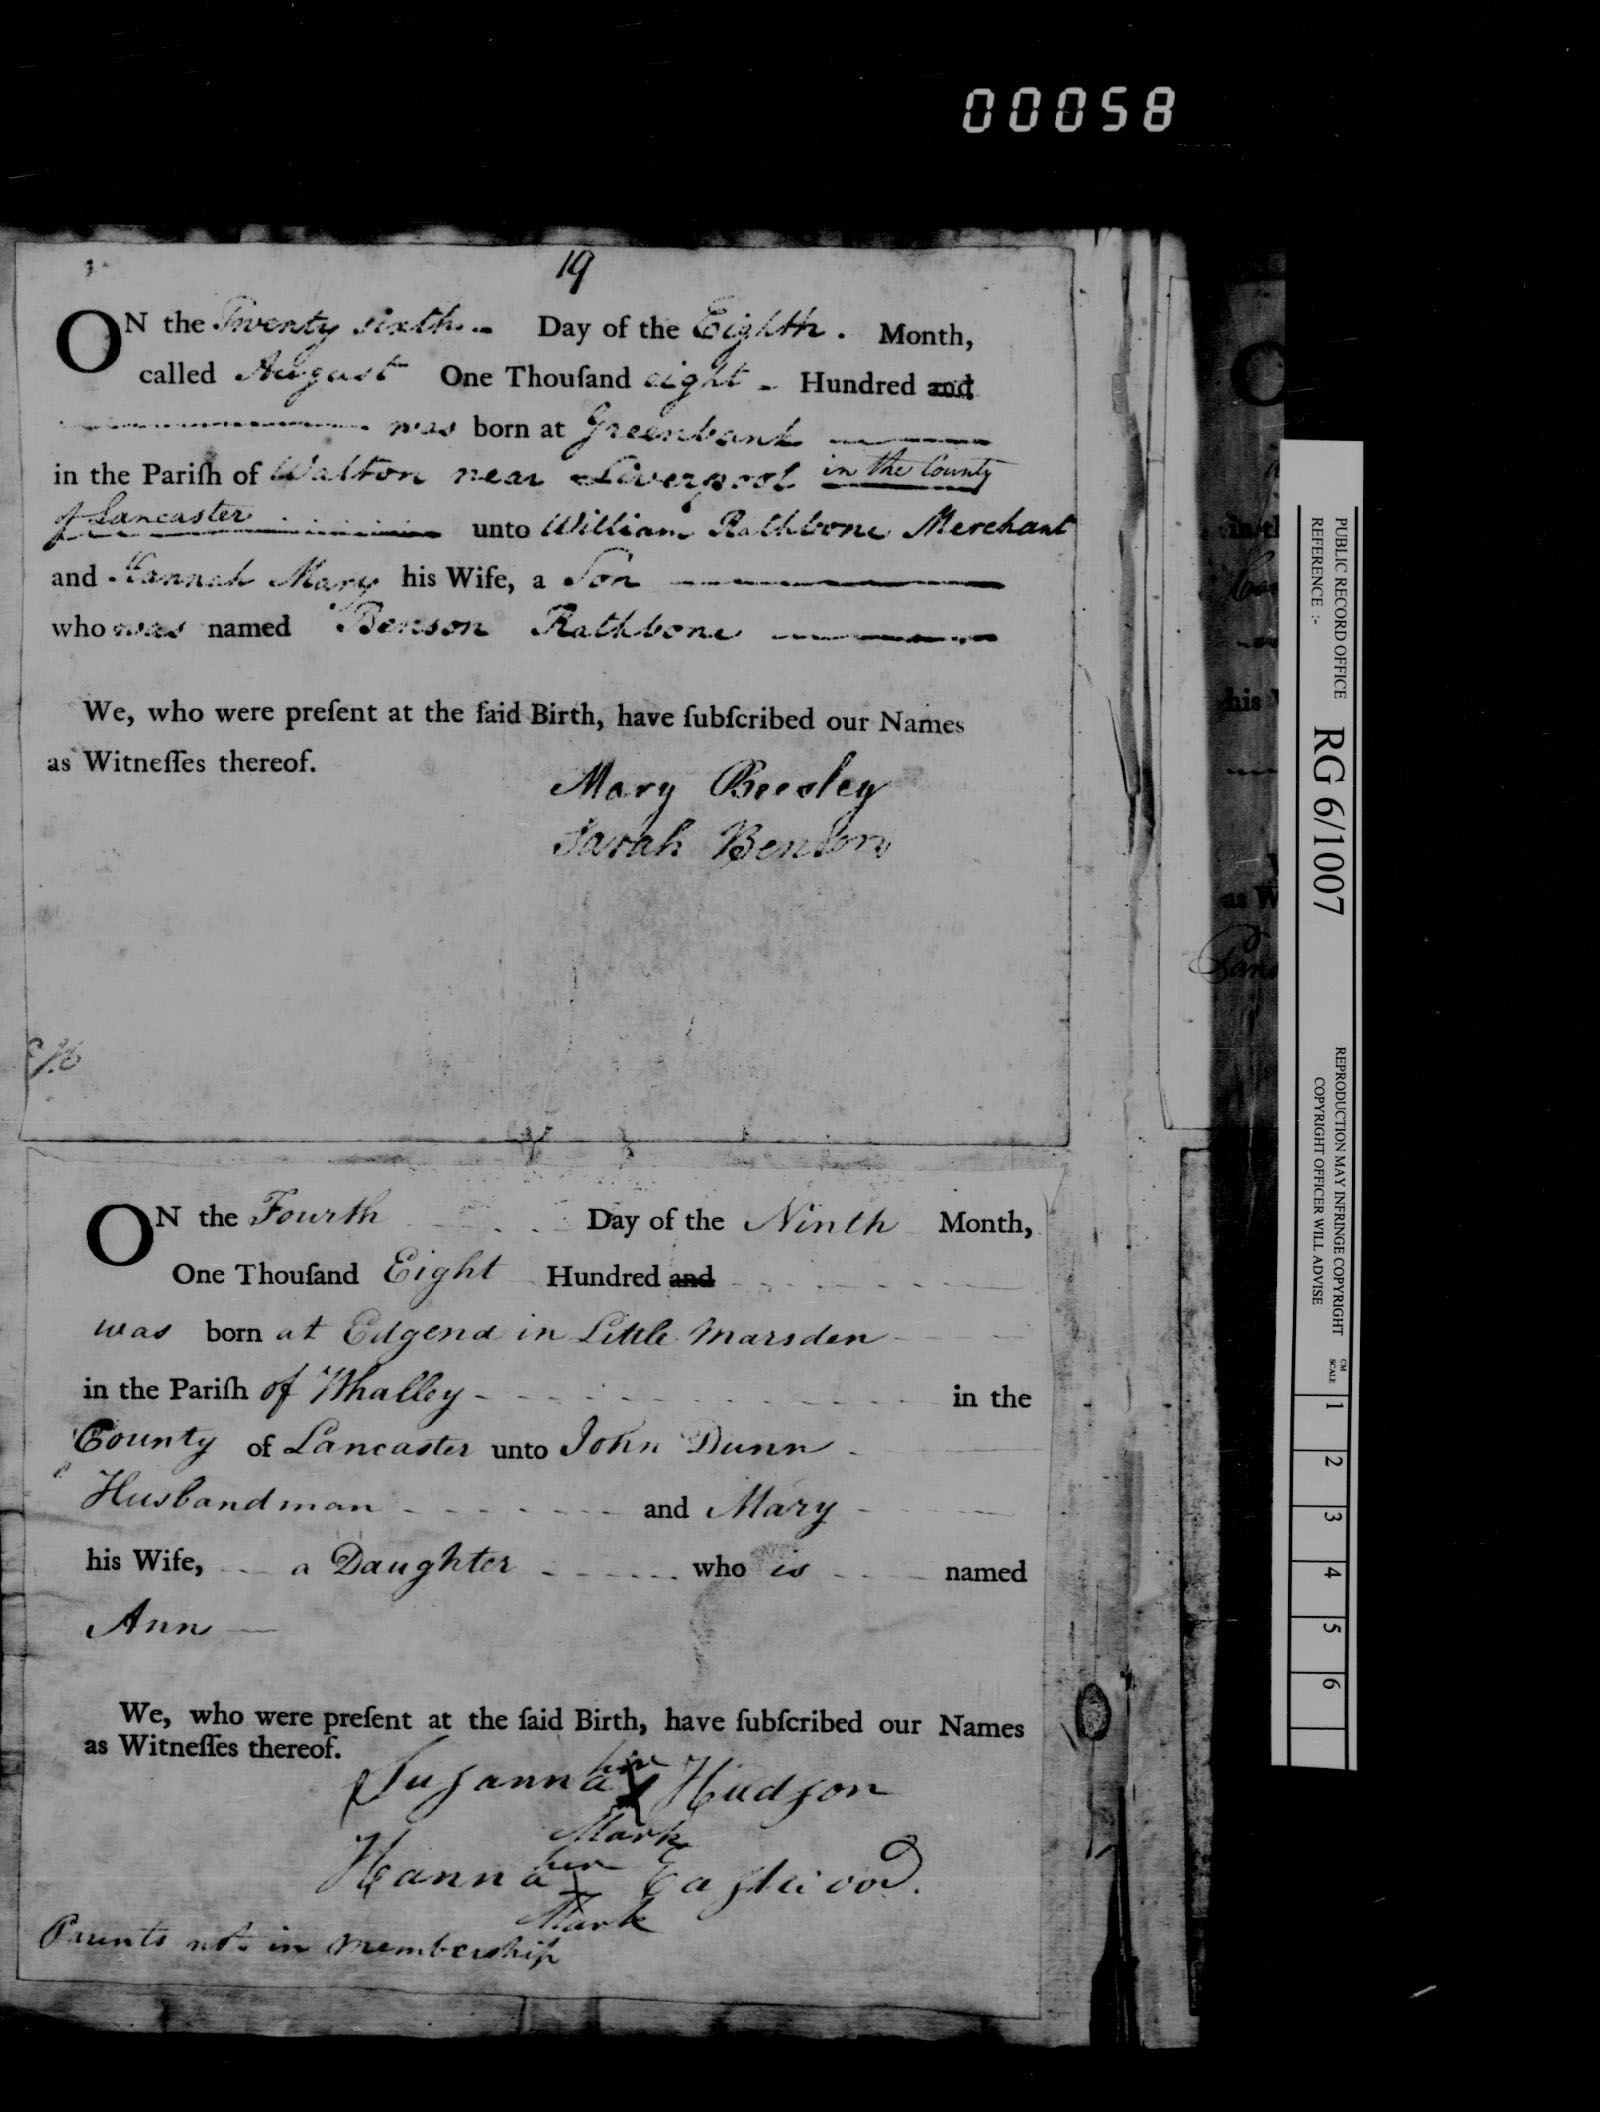 00058
19
ON the Twenty sixth Day of the Eighth. Month,
called August One Thouſand eight Hundred and
was born at Greenbank
in the Pariſh of Walton near Liverpool in the County
of Lancaster unto William Rathbone Merchant
and Hannah Mary his Wife, a Son
who was named Benson Rathbone
We, who were preſent at the ſaid Birth, have ſubſcribed our Names
as Witneſſes thereof.
Mary Beesley
Sarah Benson
ON the Fourth Day of the Ninth Month,
One Thouſand Eight Hundred and
was born at Edgend in Little Marsden
in the Pariſh of Whalley in the
County of Lancaster unto John Dunn
Husbandman and Mary
his Wife, a Daughter who is named
Ann
We, who were preſent at the ſaid Birth, have ſubſcribed our Names
as Witneſſes thereof.
Suſanna her x Hudſon
Mark
Hanna her x Eaſtwood.
Mark
Parents not in membership
PUBLIC RECORD OFFICE
REFERENCE :-
RG 6/1007
REPRODUCTION MAY INFRINGE COPYRIGHT
COPYRIGHT OFFICER WILL ADVISE
CM
SCALE
1 2 3 4 5 6